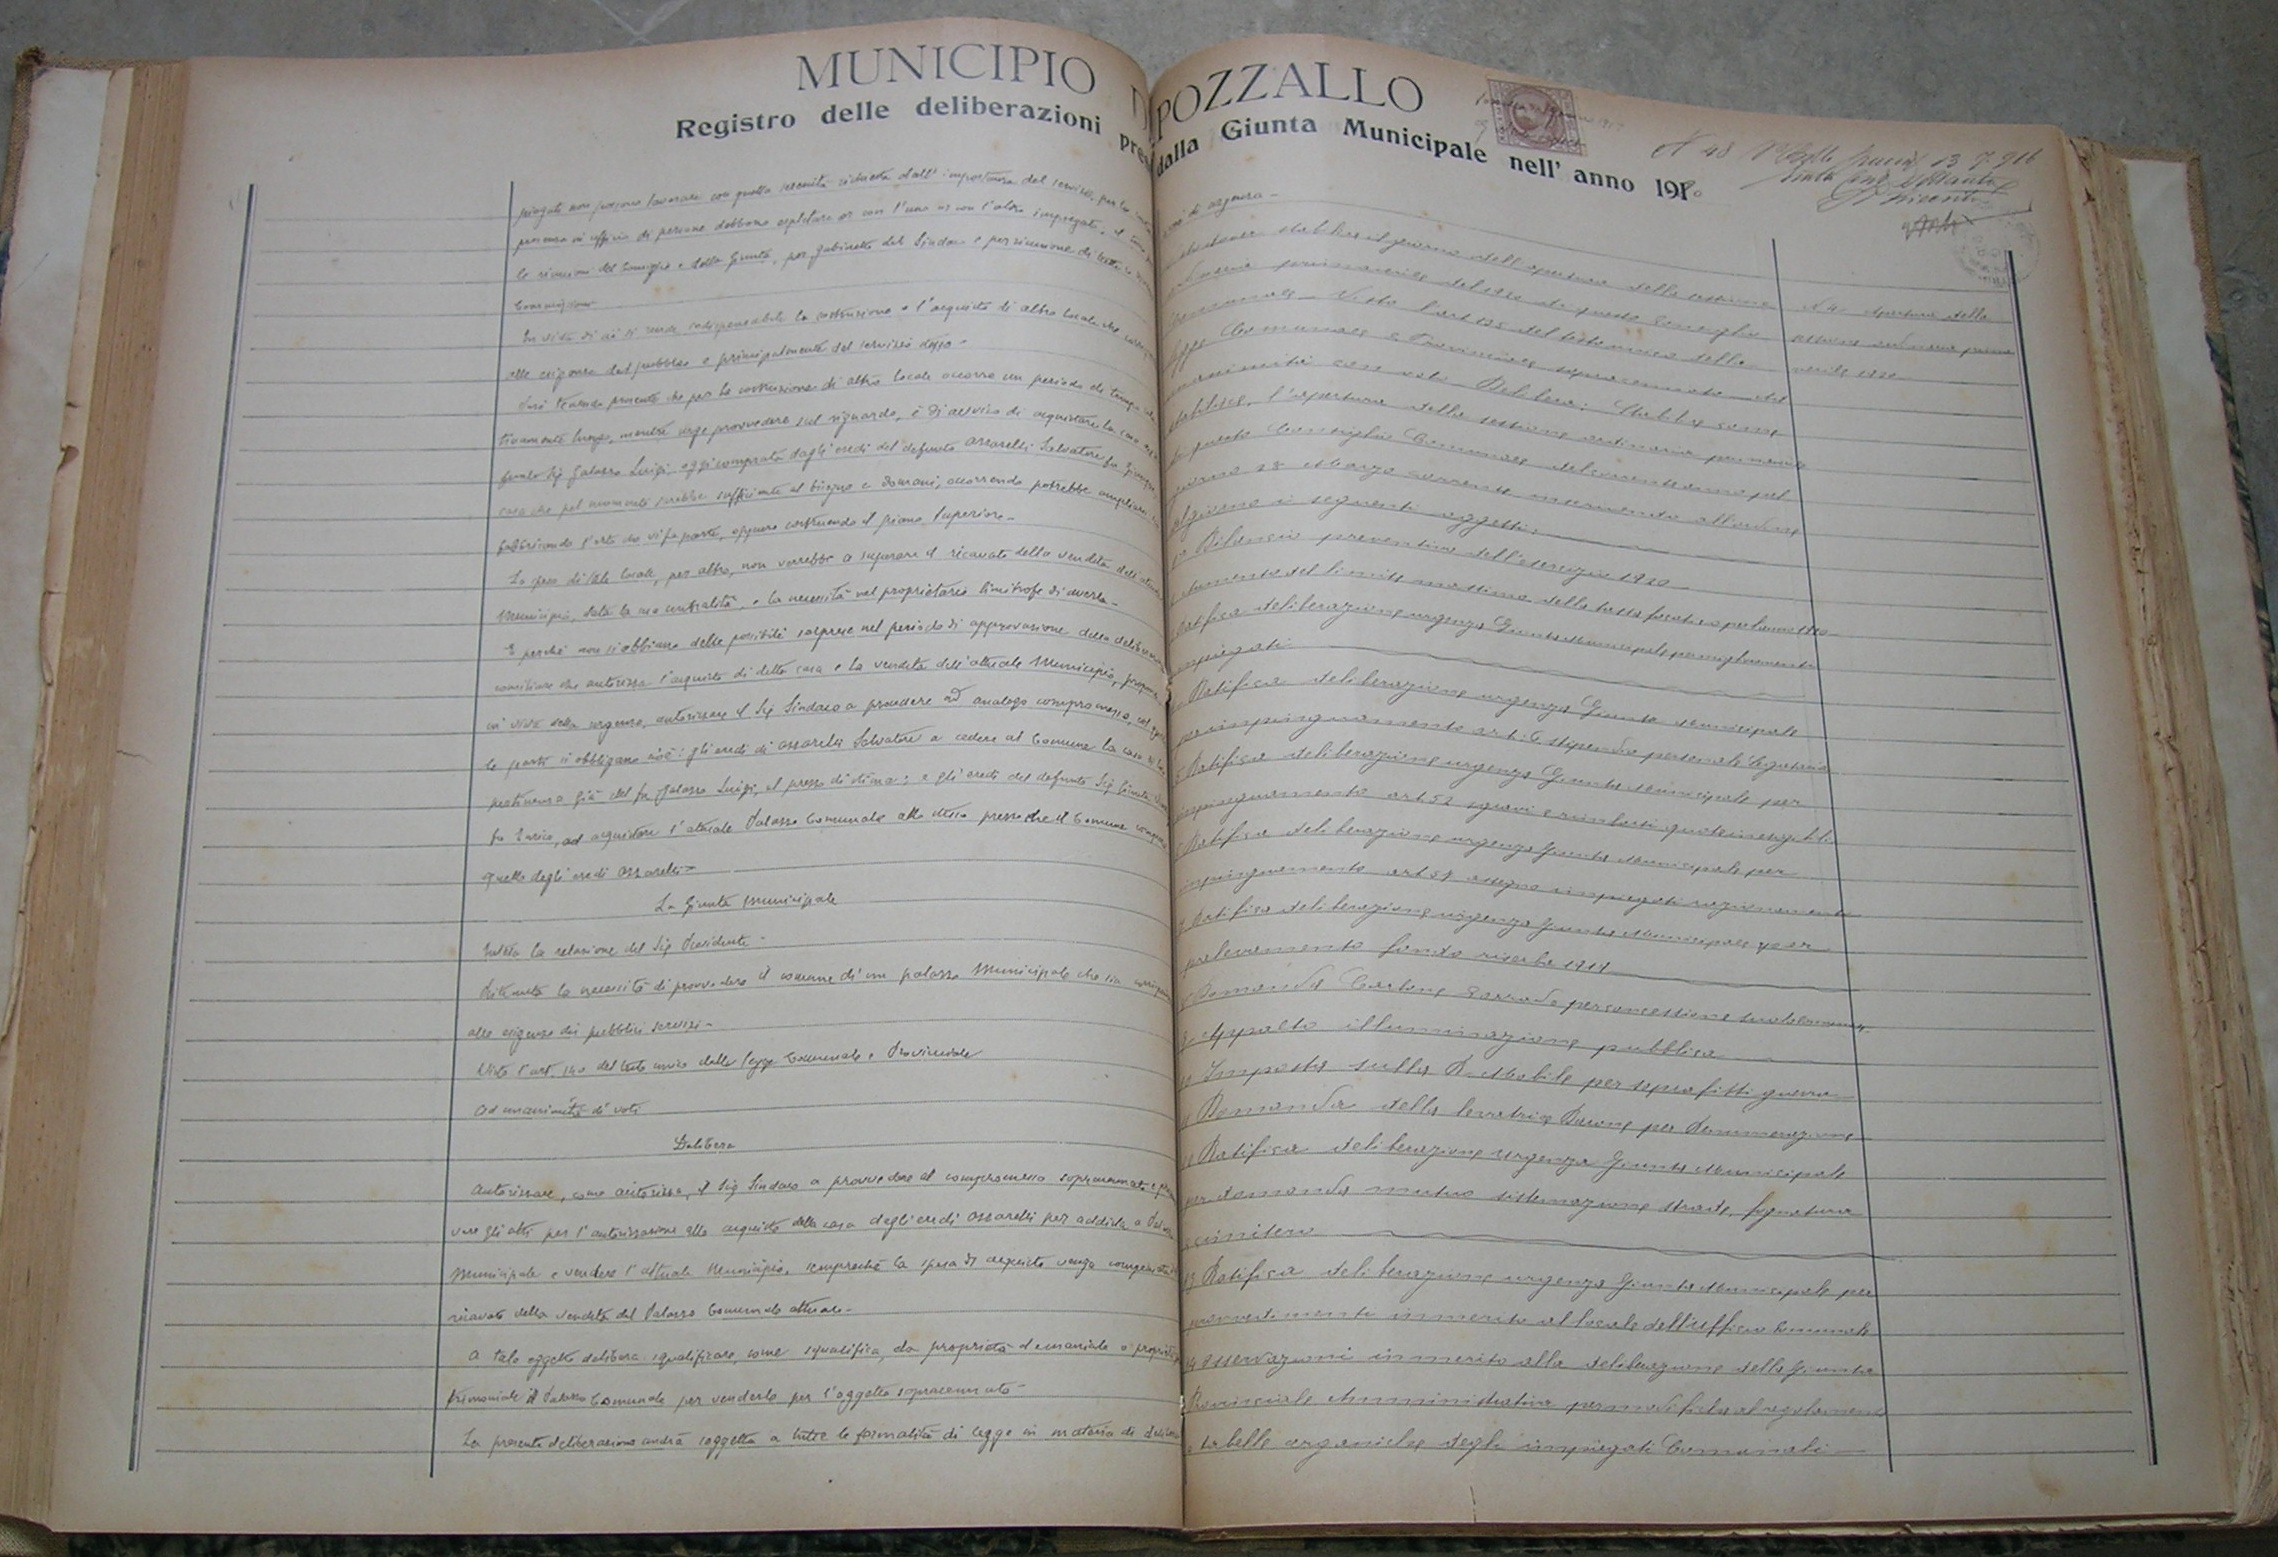 MUNICIPIO D POZZALLO
Registro delle deliberazioni pre dalla Giunta Municipale nell' anno 191
N 48
piegati non possono lavorare con quella serenità richiesta dall' importanza del servizio, per la
presenza in ufficio di persone debbono espletare or con l'uno or con l'altro impiegato, e
le riunioni del Consiglio e della Giunta, per gabinetto del Sindaco e per riunione di tutte le
Commissioni
In vista di ciò si rende indispensabile la costruzione o l'acquisto di altro locale che
alle esigenze del pubblico e principalmente del servizio stesso -
Però tenendo presente che per la costruzione di altro locale occorre un periodo di tempo
tivamente lungo, mentre urge provvedere sul riguardo, è di avviso di acquistare la casa
Sig Galazzo Luigi, oggi comprata dagli eredi del defunto Assarelli Salvatore fu
casa che pel momento sarebbe sufficiente al bisogno e domani, occorrendo potrebbe ampliarsi
fabbricando l'orto che vi fa parte, oppure costruendo il piano superiore -
La spesa di tale locale, per altro, non verrebbe a superare il ricavato della vendita dell'
Municipio, data la sua centralità e la necessità nel proprietario limitrofo di averla -
E perchè non si abbiano delle possibili sorprese nel periodo di approvazione della
consiliare che autorizza l'acquisto di detta casa e la vendita dell'attuale Municipio,
in vista della urgenza, autorizzare il Sig Sindaco a procedere ad analogo compromesso, col
le parti si obbligano cioè: gli eredi di Assarelli Salvatore a cedere al Comune la casa
pertinenza già del fu Galazzo Luigi, al prezzo di stima; e gli eredi del defunto Sig
fu Enrico, ad acquistare l'attuale Palazzo Comunale allo stesso prezzo che il Comune
quello degli eredi Assarelli -
La Giunta Municipale
Intesa la relazione del Sig Presidente -
Ritenuta la necessità di provvedere il comune di un palazzo Municipale che sia
alle esigenze dei pubblici servizi -
Visto l'art. 140 del testo unico della legge Comunale e Provinciale
Ad unanimità di voti
Delibera
Autorizzare, come autorizza, il Sig Sindaco a provvedere al compromesso sopramenzionato e
vare gli atti per l'autorizzazione allo acquisto della casa degli eredi Assarelli per addirla a
Municipale e vendere l'attuale Municipio, semprechè la spesa di acquisto venga
ricavato della vendita del Palazzo Comunale attuale -
A tale oggetto delibera squalificare, come squalifica, da proprietà demaniale a proprietà
trimoniale il Palazzo Comunale per venderlo per l'oggetto sopracennato -
La presente deliberazione andrà soggetta a tutte le formalità di legge in materia di
di
stabilirsi il giorno dell'apertura della sessione
primaverile del 1920 di questo Consiglio
Comunale - Visto l'art 125 del testo unico della
legge Comunale e Provinciale sopracennato - ad
unanimità con voti Delibera: Stabilire come
stabilisce, l'apertura della sessione ordinaria
di questo Consiglio Comunale del corrente anno pel
giorno 28 Marzo corrente inserivendo all'ordine
del giorno i seguenti oggetti:
1° Bilancio preventivo dell'esercizio 1920
Aumento del limite massimo della tassa focatico per l'anno 1920
Ratifica deliberazione urgenza Giunta Municipale per miglioramento
impiegati
Ratifica deliberazione urgenza Giunta Municipale
per impinguamento art: 6 stipendio personale Segretaria
5 Ratifica deliberazione urgenza Giunta Municipale per
impinguamento art 52 sgravi e rimborsi quote inesigibili
Ratifica deliberazione urgenza Giunta Municipale per
impinguamento art 57 assegno impiegati
7 Ratifica deliberazione urgenza Giunta Municipale per
prelevamento fondo riserba 1919
8 Domanda Carbone Corrado per concessione suolo
9 Appalto illuminazione pubblica
10 Imposta sulla R. Mobile per soprafitti guerra
11 Domanda della levatrice Barone per
12 Ratifica deliberazione urgenza Giunta Municipale
per domanda mutuo sistemazione strade, fognatura
e cimitero
13 Ratifica deliberazione urgenza Giunta Municipale per
provvedimenti in merito al locale dell'ufficio Comunale
14 Osservazioni in merito alla deliberazione della Giunta
Provinciale Amministrativa per modifiche al regolamento
e tabelle organiche degli impiegati Comunali
N 4 Apertura della
sessione ordinaria prima
verile 1920